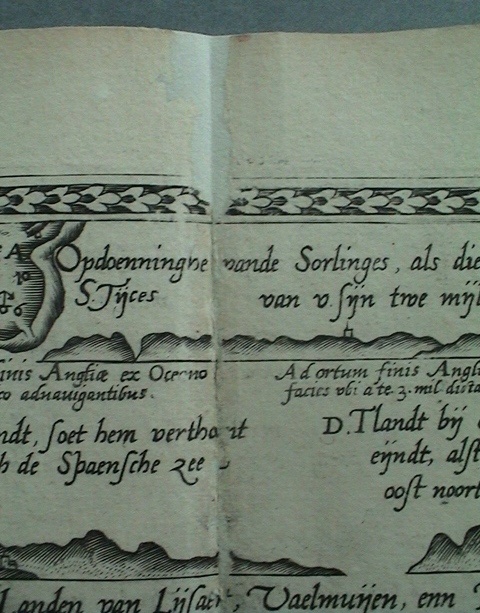 Opdoenninghe vande Sorlinges, als die
S. Tijces van v. sijn twe mijl
finis Angliæ ex Oceano
adnauigantibus.
Ad ortum finis Angli
facies vbi a te 3. mil dista
ndt, soet hem verthoont
de Spaensche zee
D. Tlandt bij
eijndt, alst
oost noort
Landen van Lijsart, Vaelmuijen, enn